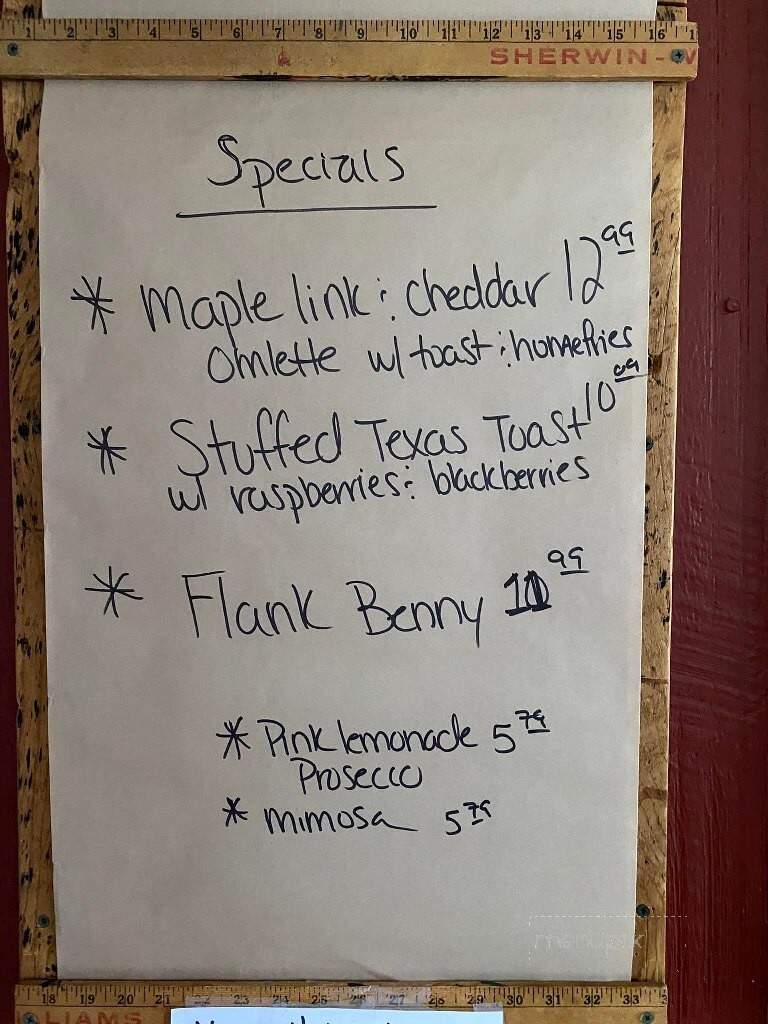 1 2 3 4 5 6 7 8 9 10 11 12 13 14 15 16
SHERWIN-W
Specials
* Maple link : cheddar 12 99
Omlette w/ toast : homefries
* Stuffed Texas Toast 10 99
w/ raspberries : blackberries
* Flank Benny 11 99
* Pink lemonade 5 79
Prosecco
* mimosa 5 79
menupix
18 19 20 21 22 23 24 25 26 27 28 29 30 31 32 33
LIAMS